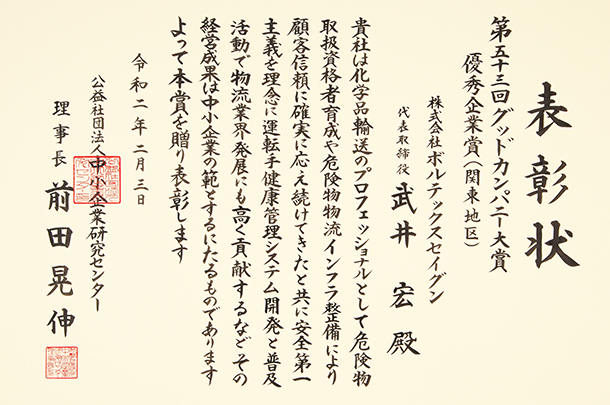 表彰状
第五十三回グッドカンパニー大賞
優秀企業賞(関東地区)
株式会社ボルテックスセイグン
代表取締役 武井 宏 殿
貴社は化学品輸送のプロフェッショナルとして危険物
取扱資格者育成や危険物物流インフラ整備により
顧客信頼に確実に応え続けてきたと共に安全第一
主義を理念に運転手健康管理システム開発と普及
活動で物流業界発展にも高く貢献するなどその
経営成果は中小企業の範とするにたるものであります
よって本賞を贈り表彰します
令和二年二月三日
公益社団法人中小企業研究センター
理事長 前田晃伸